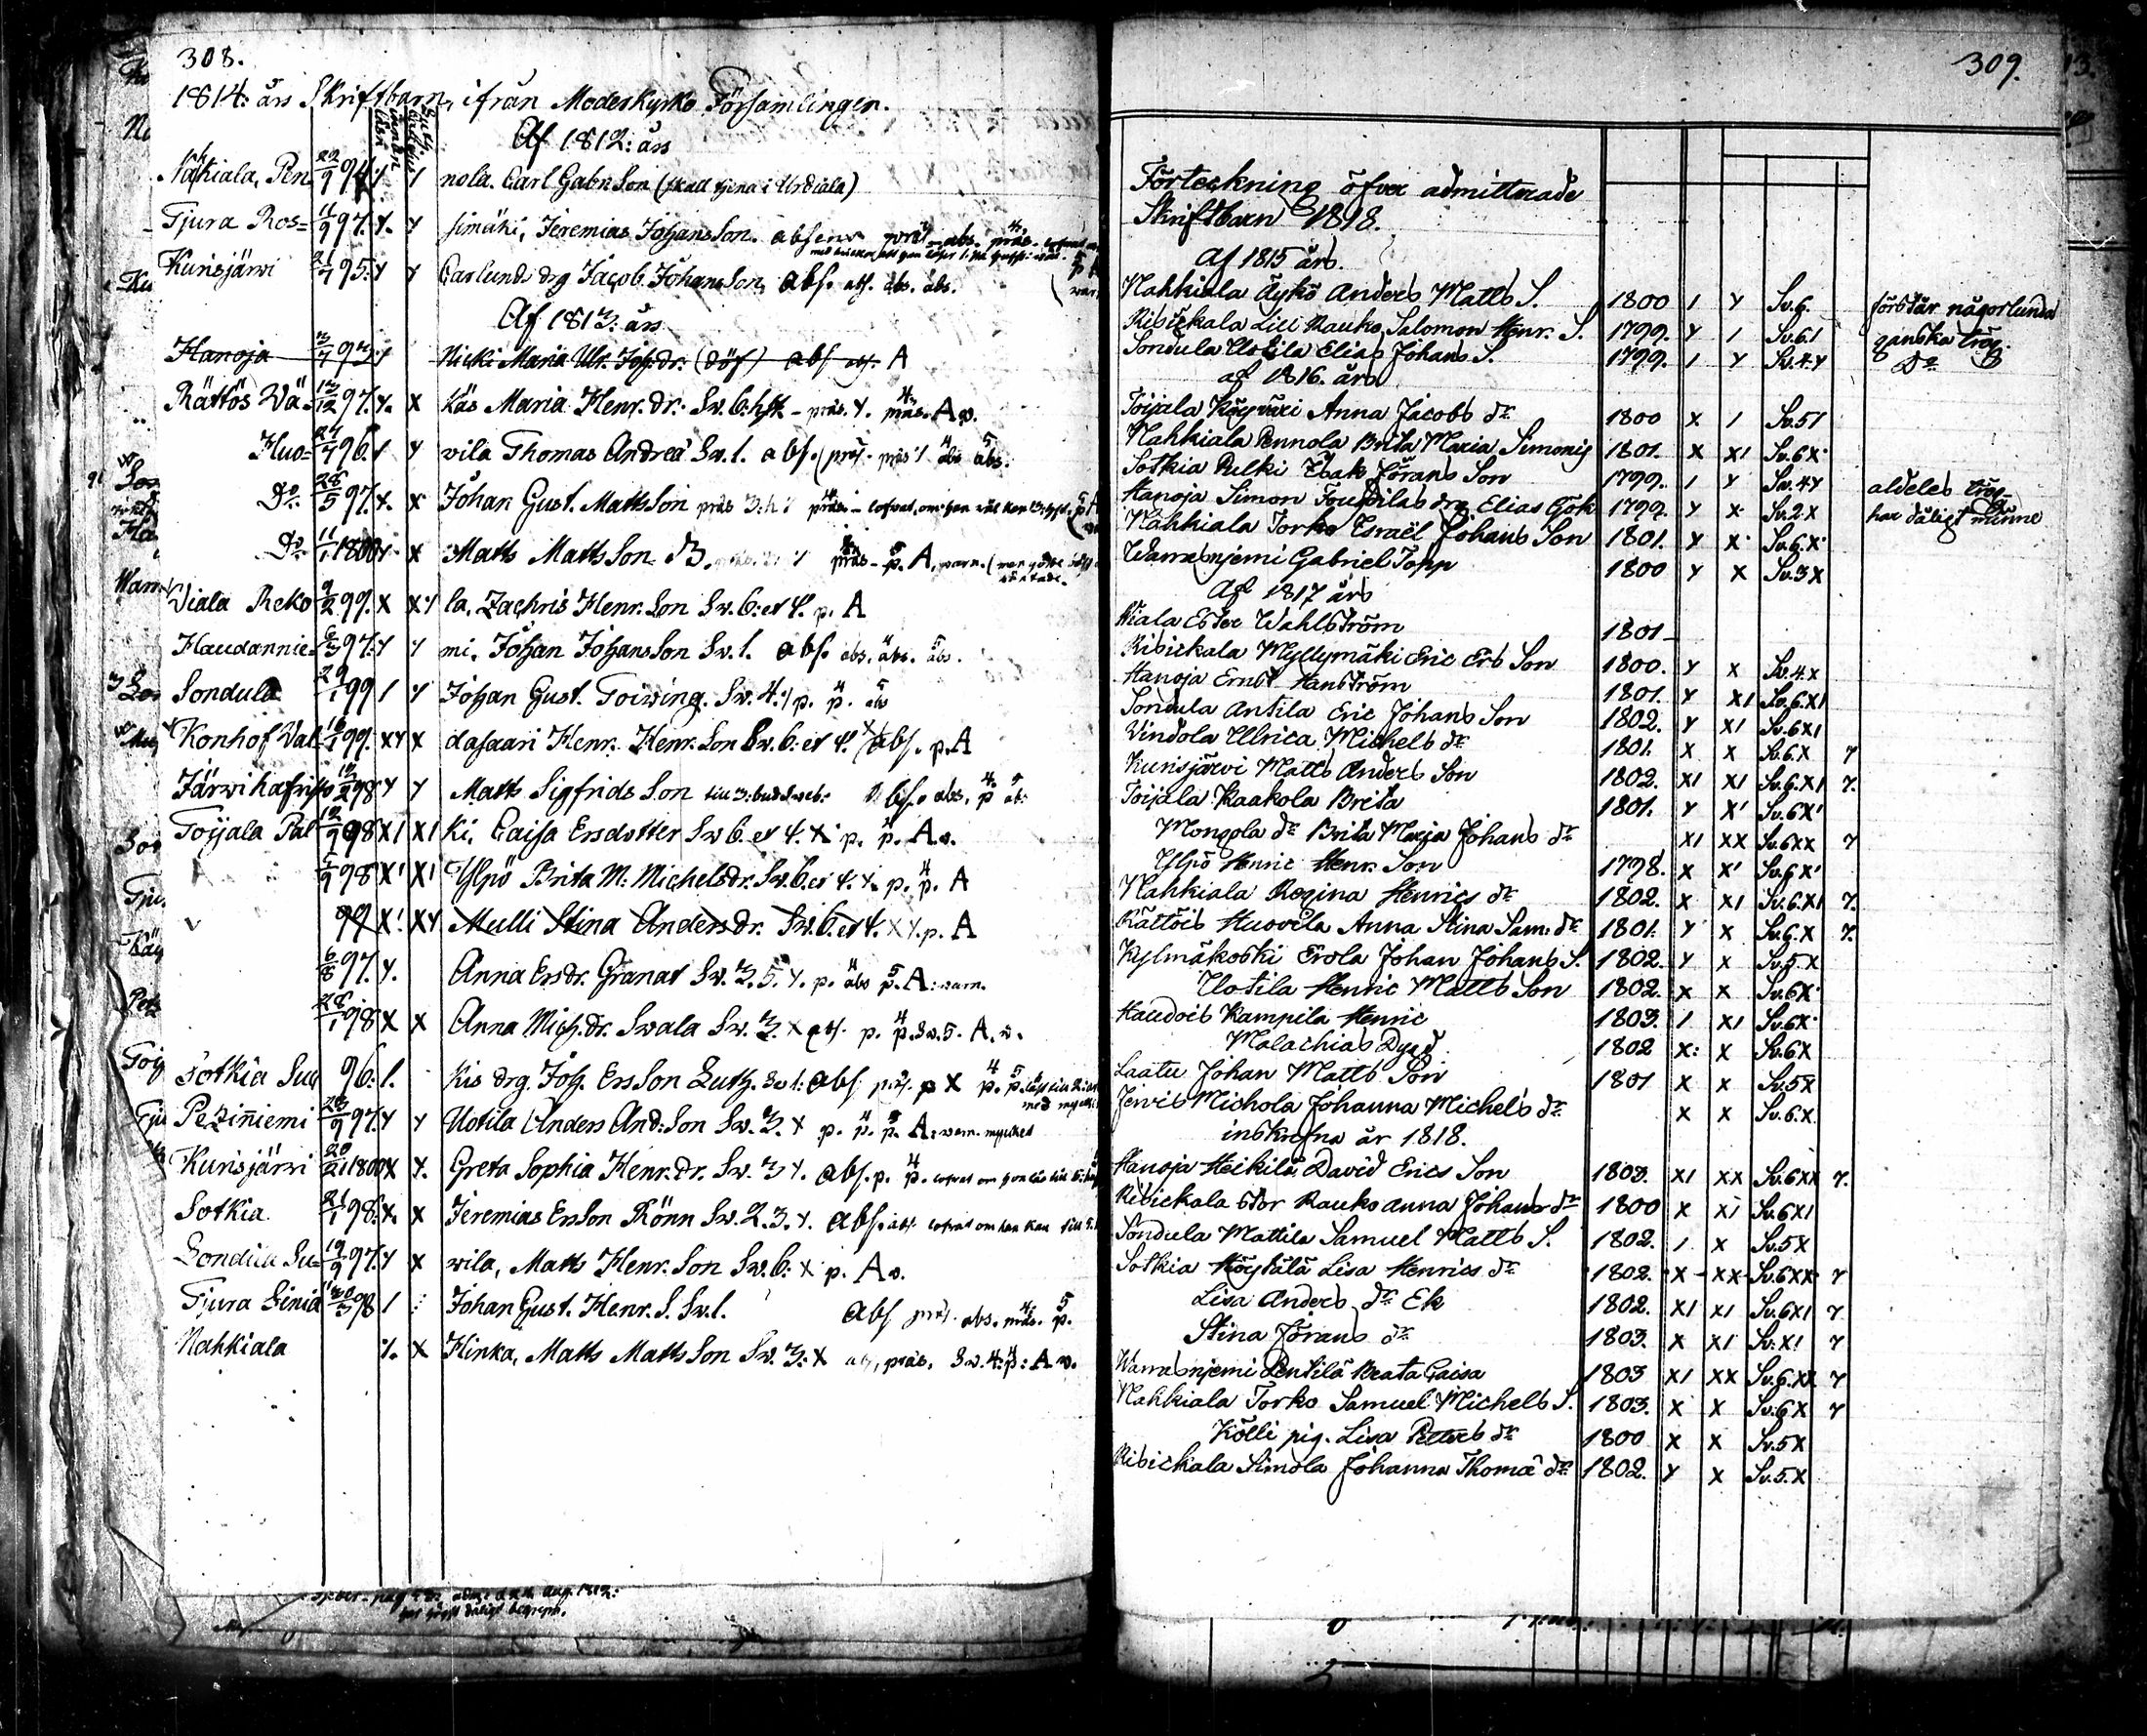 308.
1814: års Skriftbarn, ifrån Moderkyrko Församlingen.
Af 1812: års
Nahkiala, Pen= 22/9 94: nola. Carl Gabr. Son (skall tjena i Urdiala)
Tjura Ros= 11/9 97. Y. Y simäki, Jeremias Johans Son. absens präs. abs. präs.
Kurisjärwi 21/7 95: Y Y Carlunds drg Jacob Johans Son, abs. abs. abs. abs.
Af 1813: års
Hanoja 3/7 93: Y Nicki Maria Ulr. Joh. dr. (döf) abs abs. A
Rättös Wä= 13/12 97. Y. X käs Maria Henr. dr. Sw. 6: hft - präs. Y. präs. A w.
Huo= 27/7 96. Y Y vila Thomas Andreä Sw. 1. abs. präs. präs Y 4 abs 5 abs.
Do. 28/5 97. X. X Johan Gust. Matts Son präs 3: h. Y präs - lofvat, om han
Do. 11/1 1800 Y. X Matts Matts Son. B. präs - p. A, warn.
Wiala Reko 9/2 99. X XY la, Zachris Henr. Son Sw. 6: et 4. p. A
Haudannie= 6/3 97: Y Y mi, Johan Johans Son Sw. 1. abs. abs. abs. abs.
Sondula 29/1 99 / Y Johan Gust. Toiwing. Sw. 4: Y p. p. abs
Konhof Wal= 16/1 99. XY X dasaari Henr. Henr. Son Sw. 6: et 4. abs. p. A
Järwihafvisto 12/2 98 Y Y Matts Sigfrids Son till 3: bud Sweb: abs. abs. p ab:
Toijala Pal 12/9 98 X I X I ki, Caisa Ersdotter Sw 6. et 4. X p. p. A. w.
5/9 98 X I X I Ylpö Brita M: Michelsdr. Sw. 6. et 4. X. p. p. A
99 X I XY Mulli Stina Anders dr. Sw. 6. et 4. XY. p. A
6/8 97. Y. Anna Ersdr. Granat Sw. 3. 5. Y. p. abs p. A: warn.
28/1 98 X X Anna Mich. dr. Swala Sw. 3. X abs. p. p. Sw. 5. A. w.
Sotkia Suu 96: 1. kis drg. Joh. Ers Son Luth. Sw 1: abs. präs. p X p. p.
Peziniemi 23/9 97. Y Y Uotila Anders And: Son Sw. 3. X p. p. p. A: warn. mycket
Kurisjärwi 20/2 1800 X Y. Greta Sophia Henr. dr. Sw. 3 Y. abs. p. p. lofvat om hon
Sotkia 21/1 98: X. X Jeremias Ers Son Rönn Sw. 2. 3. Y. abs. abs. lofvat om han kan till 5.
Sondula Su= 19/9 97. Y X wila, Matts Henr. Son Sw. 6: X p. A w.
Tjura Sinia 30/3 98 / Johan Gust. Henr. S. Sw. 1. abs präs. abs. präs. p.
Nahkiala Y. X Hinka, Matts Matts Son Sw. 3: X abs, präs, Sw. 4: p: A w.
309.
Förteckning öfver admitterade
Skriftbarn 1818.
Af 1815 års.
Nahkiala Äykö Anders Matts S. 1800 / Y Sv. 6. förstår någorlunda
Ribickala Lill Rauko Salomon Henr. S. 1799. Y / Sv. 6 I ganska trög.
Sondula Uotila Elias Johans S. 1799. / Y Sv. 4. Y Do
af 1816. års
Toijala Köyväri Anna Jacobs dr 1800 X / Sv. 5 I
Nahkiala Pennola Brita Maria Simonis 1801. X XI Sv. 6 X
Sotkia Pulki Isak Jörans Son 1799. / Y Sv. 4 Y aldeles trög
Hanoja Simon Toupilas drg Elias Gök 1799. Y X Sv. 2 X har dåligt minne
Nahkiala Torko Israël Johans Son 1801. Y X Sv. 6. X
Warrasnjemi Gabriel Topp 1800 Y X Sv. 3 X
Af 1817 års
Wiala Ester Wahlström 1801
Ribickala Myllymäki Eric Ers Son 1800. Y X Sv. 4. X
Hanoja Ernst Hanström 1801. Y XI Sv. 6. XI
Sondula Antila Eric Johans Son 1802. Y XI Sv. 6 XI
Windola Ullrica Michels dr 1801. X X Sv. 6. X Y
Kurisjärvi Matts Anders Son 1802. XI XI Sv. 6. XI Y.
Toijala Kaakola Brita 1801. Y XI Sv. 6 XI
Mongola dr Brita Maja Johans dr XI XX Sv. 6 XX Y
Ylpö Henric Henr. Son 1798. X XI Sv. 6 XI
Nahkiala Regina Henrics dr 1802. X XI Sv. 6. XI Y.
Rättöis Huovila Anna Stina Sam: dr 1801. Y X Sv. 6. X Y.
Kylmäkoski Erola Johan Johans S. 1802. Y X Sv. 5. X
Uotila Henric Matts Son 1802. X X Sv. 6 X
Haudois Kampila Henric 1803. / XI Sv. 6 X
Malachias Dyed 1802 X: X Sv. 6 X
Laatu Johan Matts Son 1801 X X Sv. 5 X
Jervis Michola Johanna Michels dr X X Sv. 6. X
inskrefna år 1818.
Hanoja Heikilä David Erics Son 1803. XI XX Sv. 6 XX Y.
Ribickala Stor Rauko Anna Johans dr 1800 X XI Sv. 6 XI
Sondula Mattila Samuel Matts S. 1802. / X Sv. 5 X
Sotkia Köytälä Lisa Henrics dr 1802. X XX Sv. 6 XX Y
Lisa Anders dr Ek 1802. XI XI Sv. 6 XI Y
Stina Jörans dr 1803. X XI Sv. XI Y
Warrasnjemi Pentilä Beata Caisa 1803 XI XX Sv. 6. XX Y
Nahkiala Torko Samuel Michels S. 1803. X X Sv. 6 X Y
Kölli pig. Lisa Petters dr 1800 X X Sv. 5 X
Ribickala Simola Johanna Thomæ dr 1802. Y X Sv. 5. X